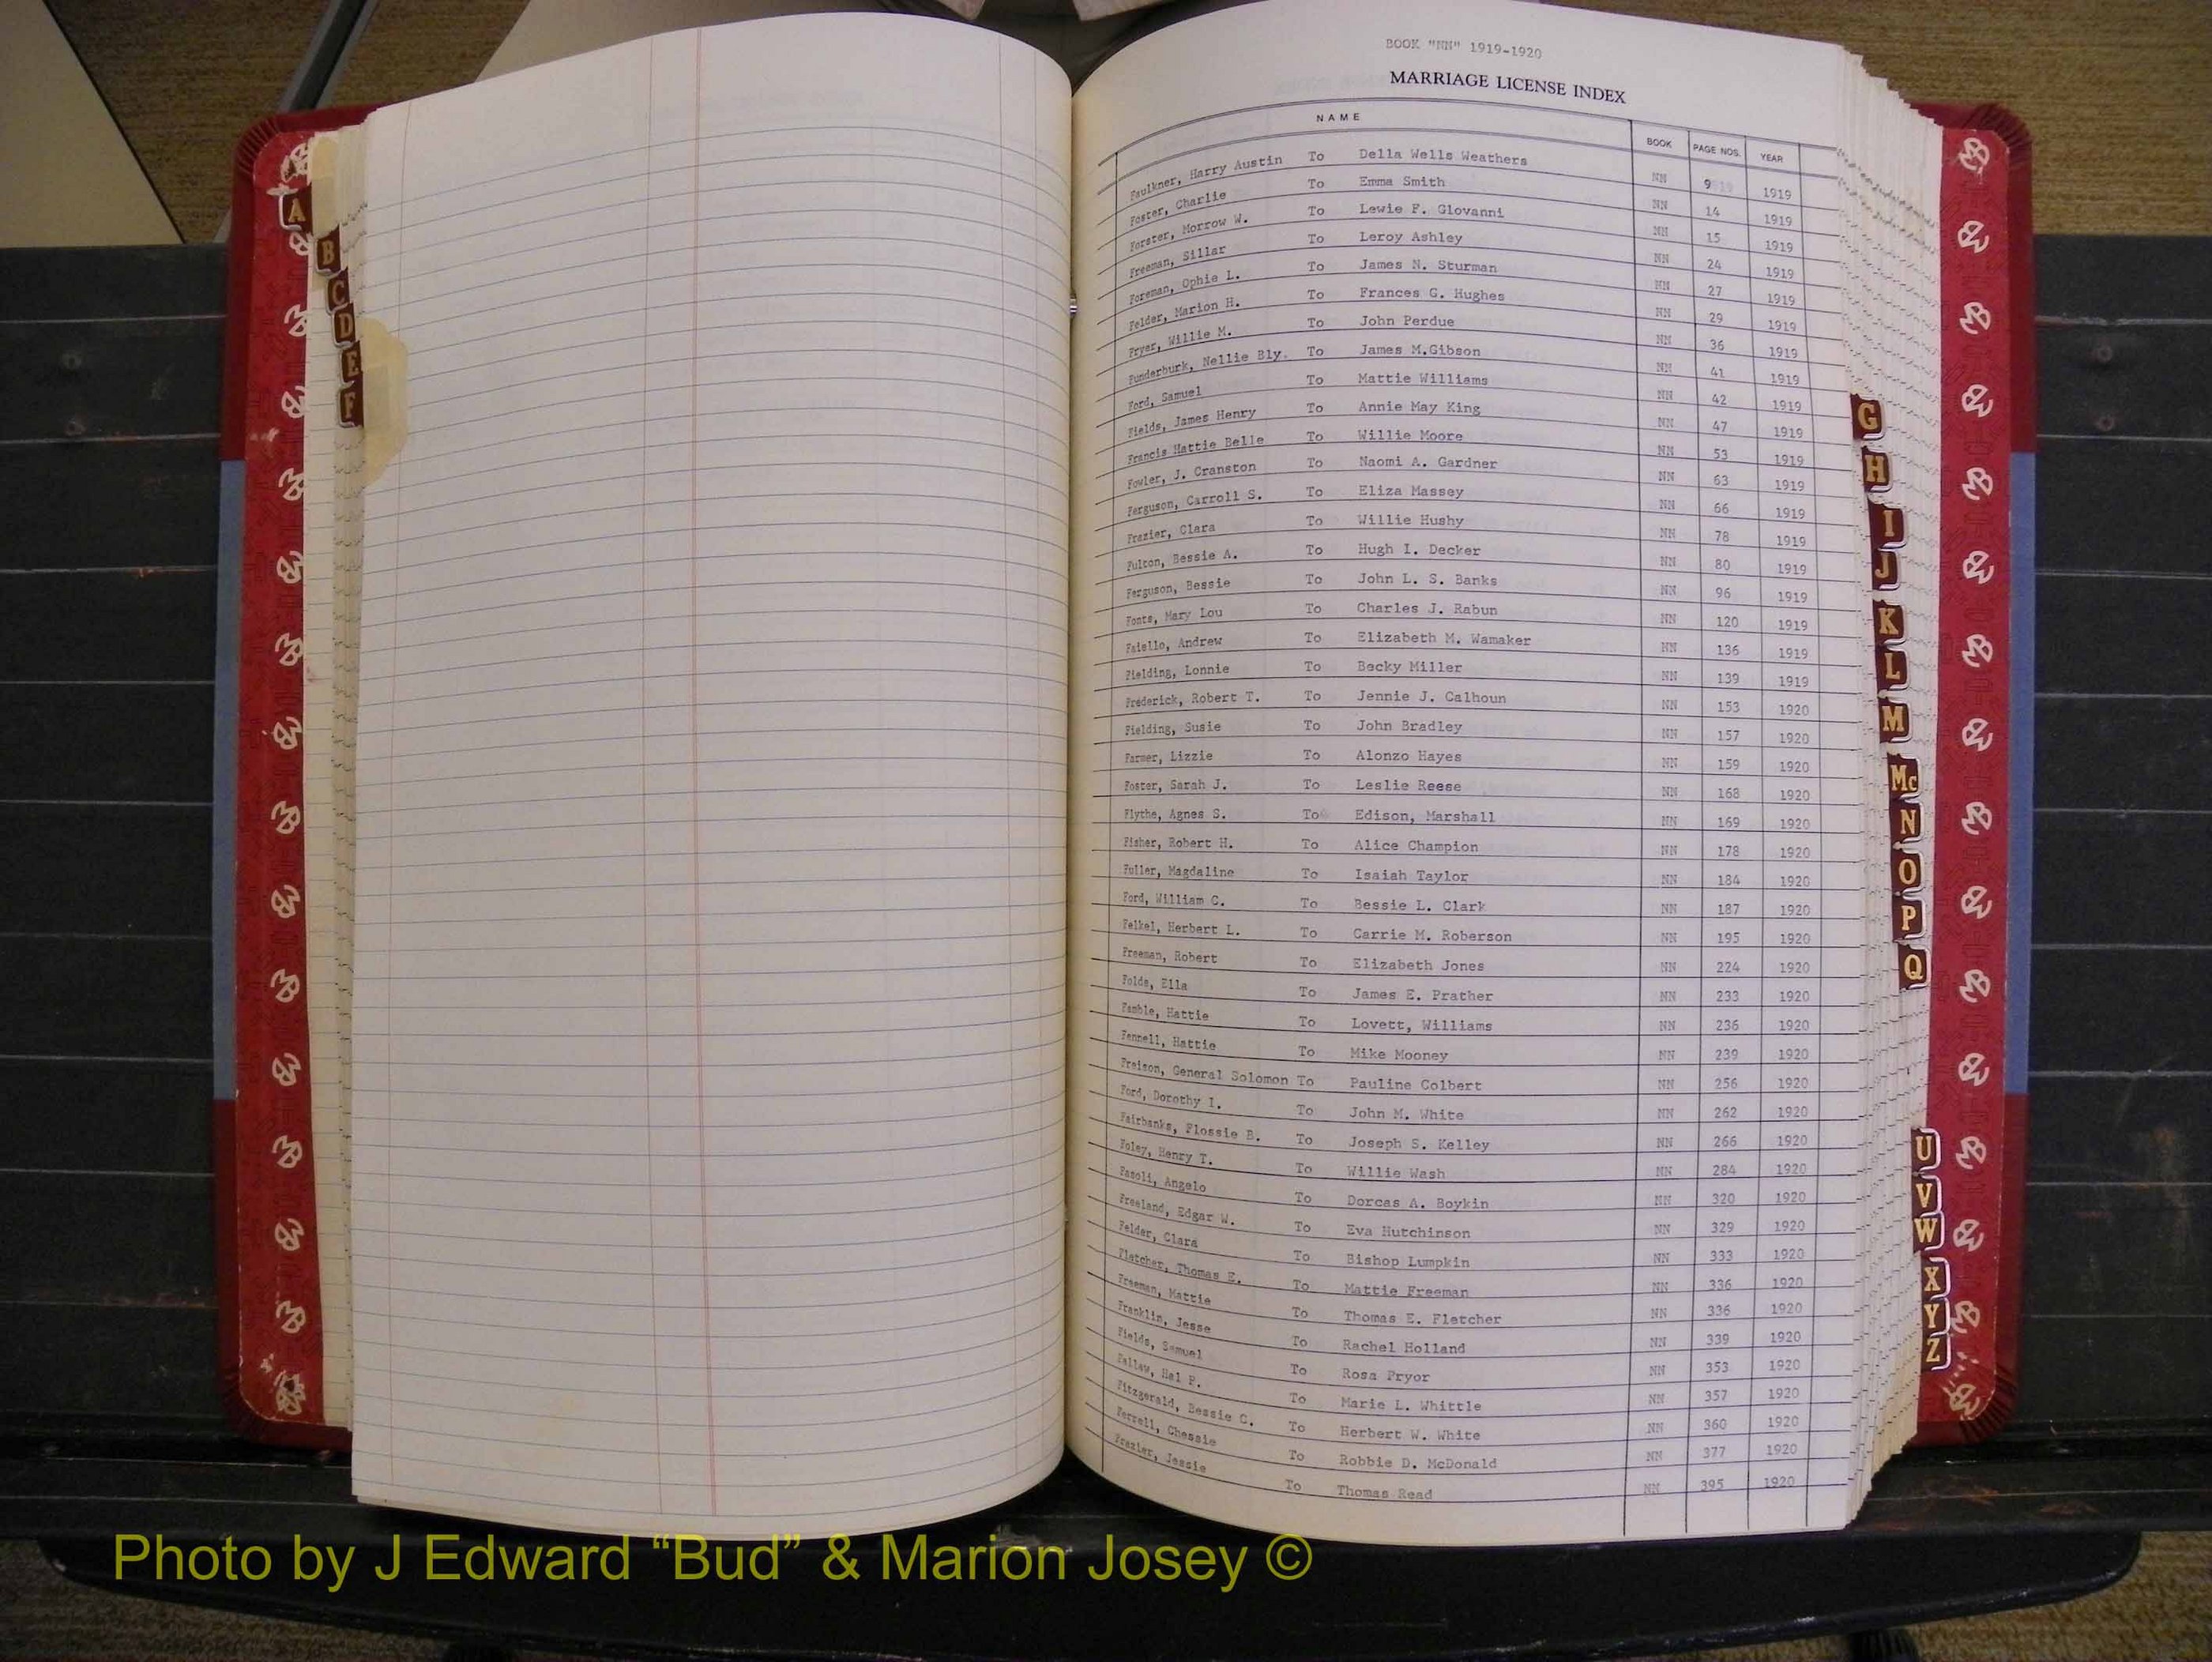 BOOK "NN" 1919-1920
MARRIAGE LICENSE INDEX
NAME BOOK PAGE NOS. YEAR
Faulkner, Harry Austin To Della Wells Weathers NN 9 1919
Foster, Charlie To Emma Smith NN 14 1919
Forster, Morrow W. To Lewie F. Giovanni NN 15 1919
Freeman, Sillar To Leroy Ashley NN 24 1919
Foreman, Ophie L. To James N. Sturman NN 27 1919
Felder, Marion H. To Frances G. Hughes NN 29 1919
Fryer, Willie M. To John Perdue NN 36 1919
Funderburk, Nellie Bly. To James M.Gibson NN 41 1919
Ford, Samuel To Mattie Williams NN 42 1919
Fields, James Henry To Annie May King NN 47 1919
Francis Hattie Belle To Willie Moore NN 53 1919
Fowler, J. Cranston To Naomi A. Gardner NN 63 1919
Ferguson, Carroll S. To Eliza Massey NN 66 1919
Frazier, Clara To Willie Hushy NN 78 1919
Fulton, Bessie A. To Hugh I. Decker NN 80 1919
Ferguson, Bessie To John L. S. Banks NN 96 1919
Fonts, Mary Lou To Charles J. Rabun NN 120 1919
Faiello, Andrew To Elizabeth M. Wamaker NN 136 1919
Fielding, Lonnie To Becky Miller NN 139 1919
Frederick, Robert T. To Jennie J. Calhoun NN 153 1920
Fielding, Susie To John Bradley NN 157 1920
Farmer, Lizzie To Alonzo Hayes NN 159 1920
Foster, Sarah J. To Leslie Reese NN 168 1920
Flythe, Agnes S. To Edison, Marshall NN 169 1920
Fisher, Robert H. To Alice Champion NN 178 1920
Fuller, Magdaline To Isaiah Taylor NN 184 1920
Ford, William C. To Bessie L. Clark NN 187 1920
Felkel, Herbert L. To Carrie M. Roberson NN 195 1920
Freeman, Robert To Elizabeth Jones NN 224 1920
Folds, Ella To James E. Prather NN 233 1920
Famble, Hattie To Lovett, Williams NN 236 1920
Fennell, Hattie To Mike Mooney NN 239 1920
Freison, General Solomon To Pauline Colbert NN 256 1920
Ford, Dorothy I. To John M. White NN 262 1920
Fairbanks, Flossie B. To Joseph S. Kelley NN 266 1920
Foley, Henry T. To Willie Wash NN 284 1920
Fasoli, Angelo To Dorcas A. Boykin NN 320 1920
Freeland, Edgar W. To Eva Hutchinson NN 329 1920
Felder, Clara To Bishop Lumpkin NN 333 1920
Fletcher, Thomas E. To Mattie Freeman NN 336 1920
Freeman, Mattie To Thomas E. Fletcher NN 336 1920
Franklin, Jesse To Rachel Holland NN 339 1920
Fields, Samuel To Rosa Pryor NN 353 1920
Fallaw, Hal P. To Marie L. Whittle NN 357 1920
Fitzgerald, Bessie C. To Herbert W. White NN 360 1920
Ferrell, Chessie To Robbie D. McDonald NN 377 1920
Frazier, Jessie To Thomas Read NN 395 1920
A
B
C
D
E
F
G
H
I
J
K
L
M
Mc
N
O
P
Q
U
V
W
X
Y
Z
Photo by J Edward “Bud” & Marion Josey ©